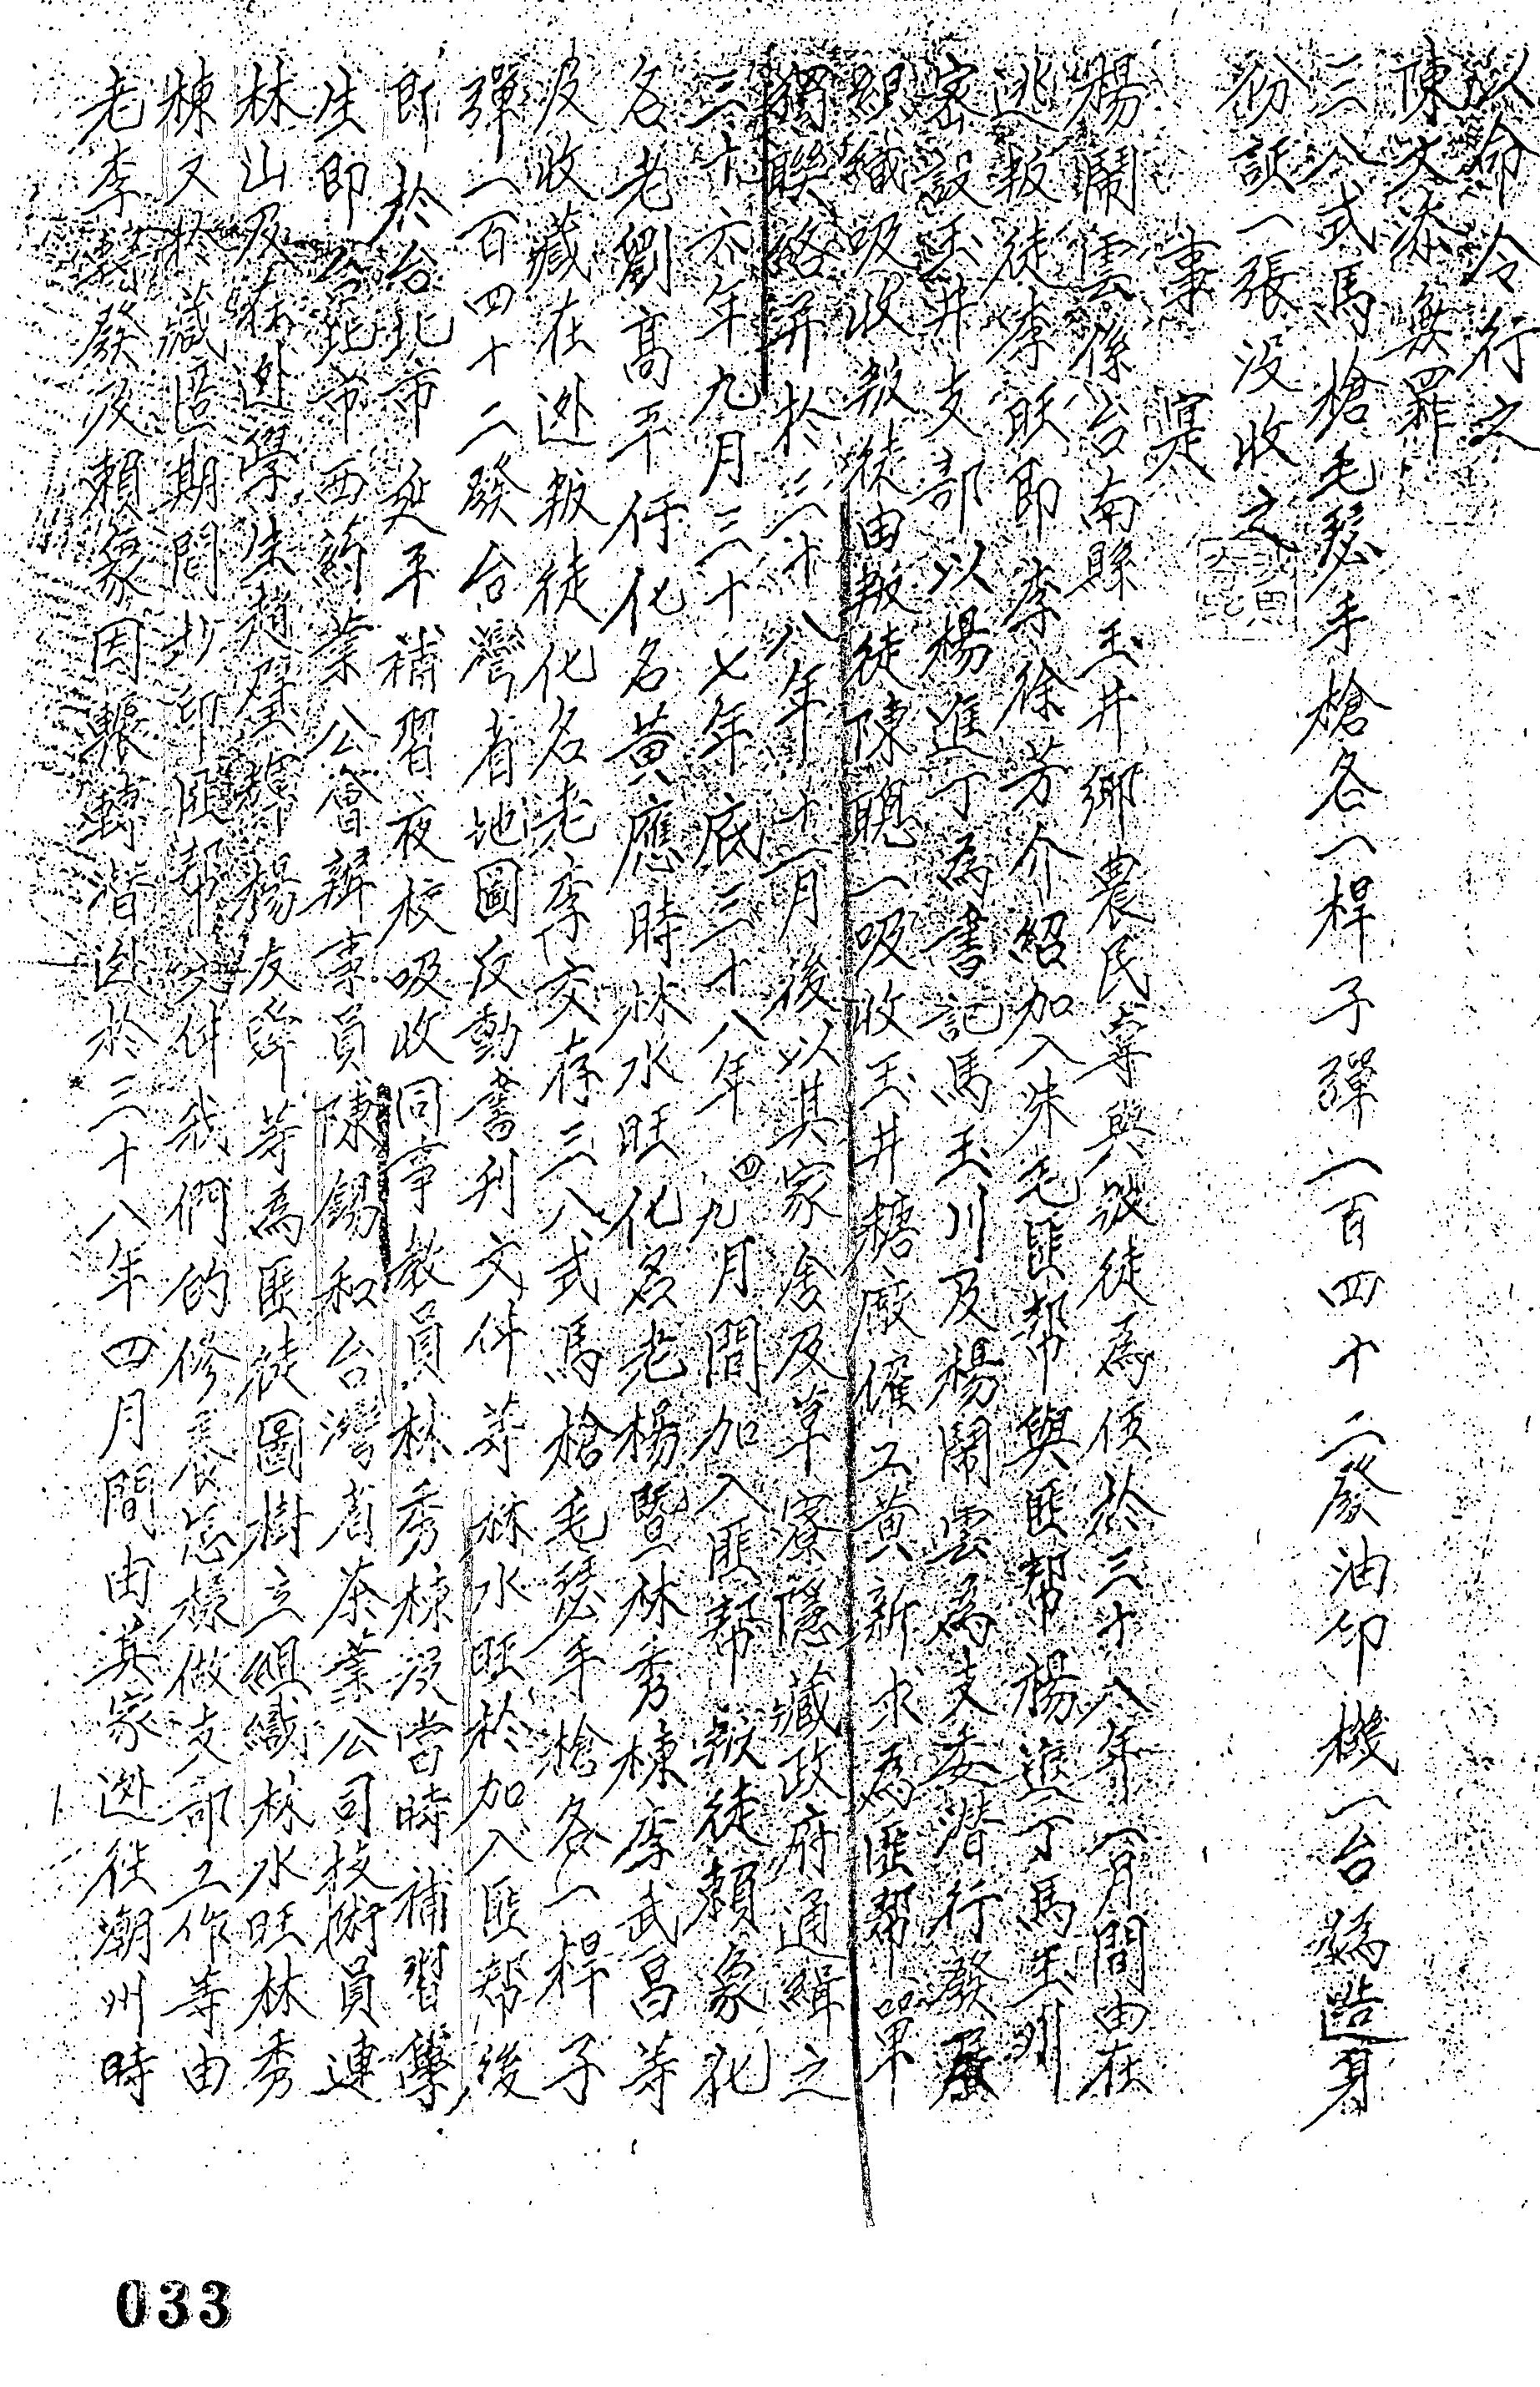 以命令行之
陳文添無罪
三八式馬槍毛瑟手槍各一桿子彈一百四十二發油印機一台偽造身
份証一張沒收之
事實
楊鬧雲係台南縣玉井鄉農民專與叛徒為伍於三十八年一月間由在
逃叛徒李旺即李徐芳介紹加入朱毛匪幫與匪幫楊進丁馬玉川
密設玉井支部以楊進丁為書記馬玉川及楊鬧雲為支委潛行發展
組織吸收叛徒由叛徒陳聰一吸收玉井糖廠僱工黃新求為匪幫單
獨聯絡并於三十八年十一月後以其家舍及草寮隱藏政府通緝之
三十六年九月三十七年底三十八年四九月間加入匪幫叛徒賴象化
名老劉高平仔化名黃應時林水旺化名老楊暨林秀棟李武昌等
及收藏在逃叛徒化名老李交存三八式馬槍毛瑟手槍各一桿子
彈一百四十二發台灣省地圖反動書刊文件等林水旺於加入匪幫後
即於台北市延平補習夜校吸收同事教員林秀棟及當時補習學
生即台北市西葯業公會辦事員陳錫和台灣省茶業公司技術員連
林山及在逃學生趙璧輝楊友舜等為匪徒圖樹立組織林水旺林秀
棟又於藏匿期間抄印匪幫文件我們的修養怎樣做支部工作等由
老李勢發及賴象因輾轉潛匿於三十八年四月間由其家逃往潮州時
033